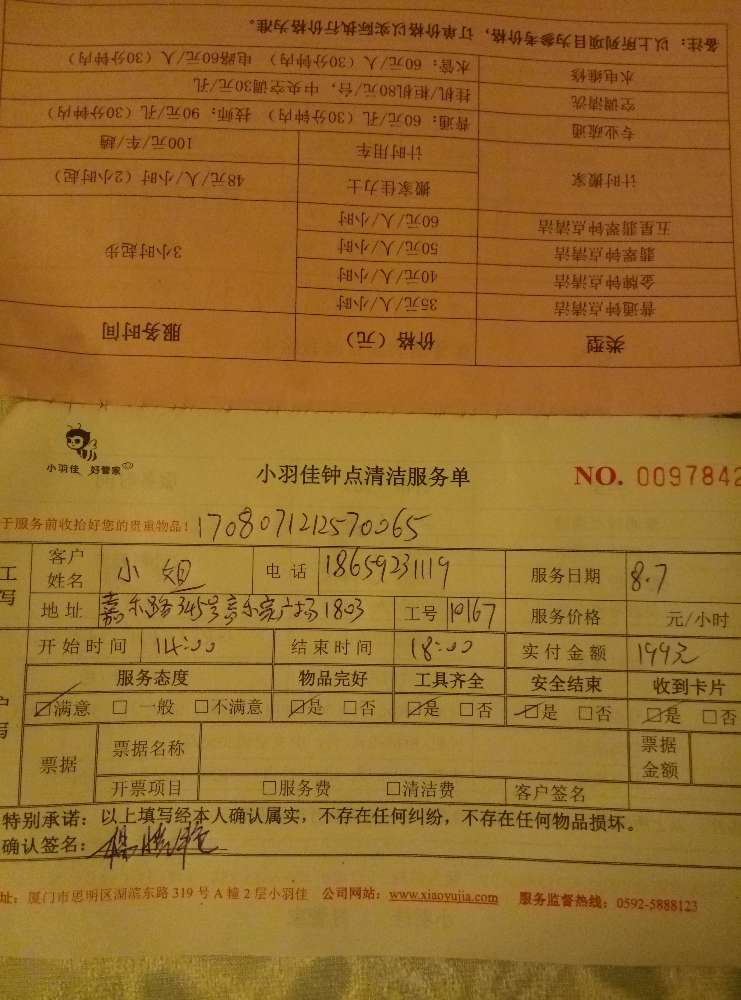 备注：以上所列项目为参考价格，订单价格以实际执行价格为准。
水电维修 水管：60元/人（30分钟内） 电路60元/人（30分钟内）
空调清洗 挂机/柜机80元/台，中央空调30元/孔
专业疏通 普通：60元/孔（30分钟内） 技师：90元/孔（30分钟内）
计时用车 100元/车/趟
计时搬家
搬家佳力士 48元/人/小时（2小时起）
五星翡翠钟点清洁 60元/人/小时
翡翠钟点清洁 50元/人/小时 3小时起步
金牌钟点清洁 40元/人/小时
普通钟点清洁 35元/人/小时
类型 价格（元） 服务时间
小羽佳 好管家
小羽佳钟点清洁服务单 NO. 0097842
于服务前收拾好您的贵重物品！ 1708071212570065
工
写
客户姓名 小姐 电话 18659231119 服务日期 8.7
地址 嘉禾路345号嘉禾宾广场1803 工号 10167 服务价格 元/小时
开始时间 14:00 结束时间 18:00 实付金额 199元
服务态度 物品完好 工具齐全 安全结束 收到卡片
☑满意 □一般 □不满意 ☑是 □否 ☑是 □否 ☑是 □否 ☑是 □否
户
写
票据 票据名称 票据金额
开票项目 □服务费 □清洁费 客户签名
特别承诺：以上填写经本人确认属实，不存在任何纠纷，不存在任何物品损坏。
确认签名：
址：厦门市思明区湖滨东路319号A幢2层小羽佳 公司网站：www.xiaoyujia.com 服务监督热线：0592-5888123